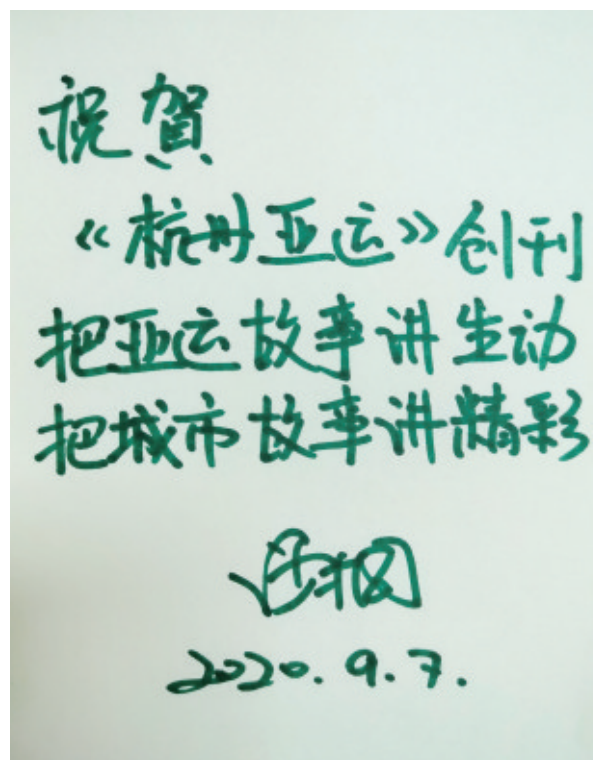 祝賀
《杭州亚运》创刊
把亚运故事讲生动
把城市故事讲精彩
2020.9.7.